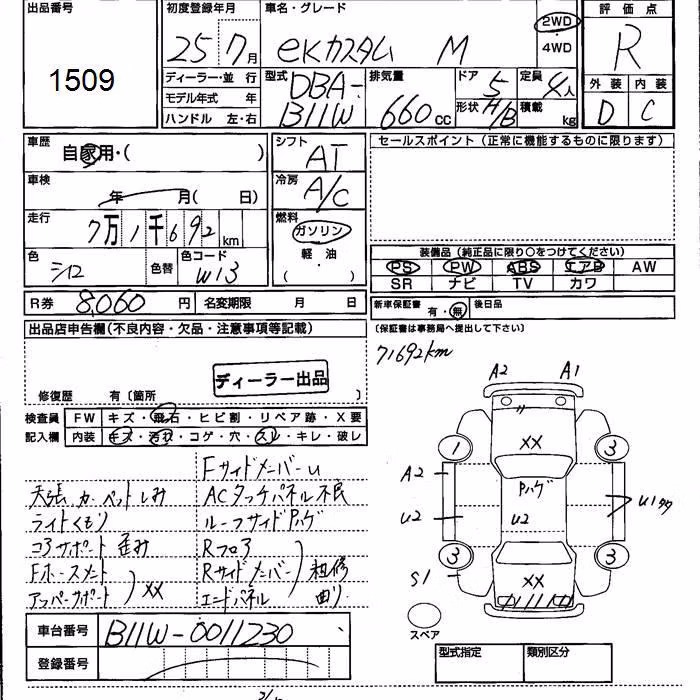 出品番号
1509
初度登録年月
25 7月
車名・グレード
eKカスタム M
2WD
・
4WD
評価点
R
外装 内装
D C
ディーラー・並 行
モデル年式 年
ハンドル 左・右
型式
DBA-
B11W
排気量
660cc
ドア 5
形状 H/B
定員 4人
積載 kg
車歴
自家用・( )
車検
年 月( 日)
走行
7万1千692km
色
シロ
色替
色コード
W13
シフト
AT
冷房
A/C
燃料
ガソリン
軽・油
( )
セールスポイント(正常に機能するものに限ります)
装備品(純正品に限り○をつけてください)
PS PW ABS エアB AW
SR ナビ TV カワ
R券 8,060円 名変期限 月 日
新車保証書 有・無 後日品
(保証書は事務局へ提出して下さい)
71692km
出品店申告欄(不良内容・欠品・注意事項等記載)
ディーラー出品
修復歴 有〔箇所 〕
検査員
記入欄
FW キズ・飛石・ヒビ割・リペア跡・X要
内装 キズ・汚れ・コゲ・穴・スレ・キレ・破レ
FサイドメンバーU
天張 カーペットしみ ACタッチパネル不良
ライトくもり ルーフサイドPハゲ
コアサポート 歪み Rフロア
Fホースメント Rサイドメンバー
XX
アッパーサポート エンドパネル
補修
曲り
A2 A1
1 XX 3
A2 Pハゲ
U2 U2 U1
3 XX 3
S1
スペア
車台番号 B11W-0011230
登録番号
型式指定 類別区分